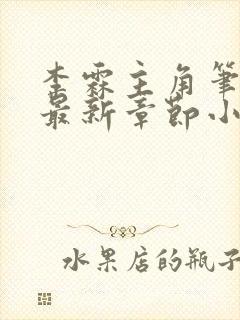 李霖主角笔
最新章节小
水果店的瓶子